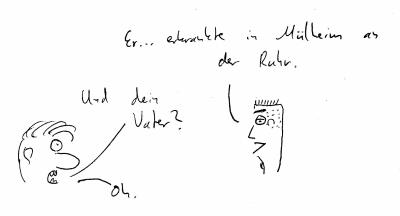 Er... erkrankte in Mülheim an
der Ruhr.
Und dein
Vater?
Oh.